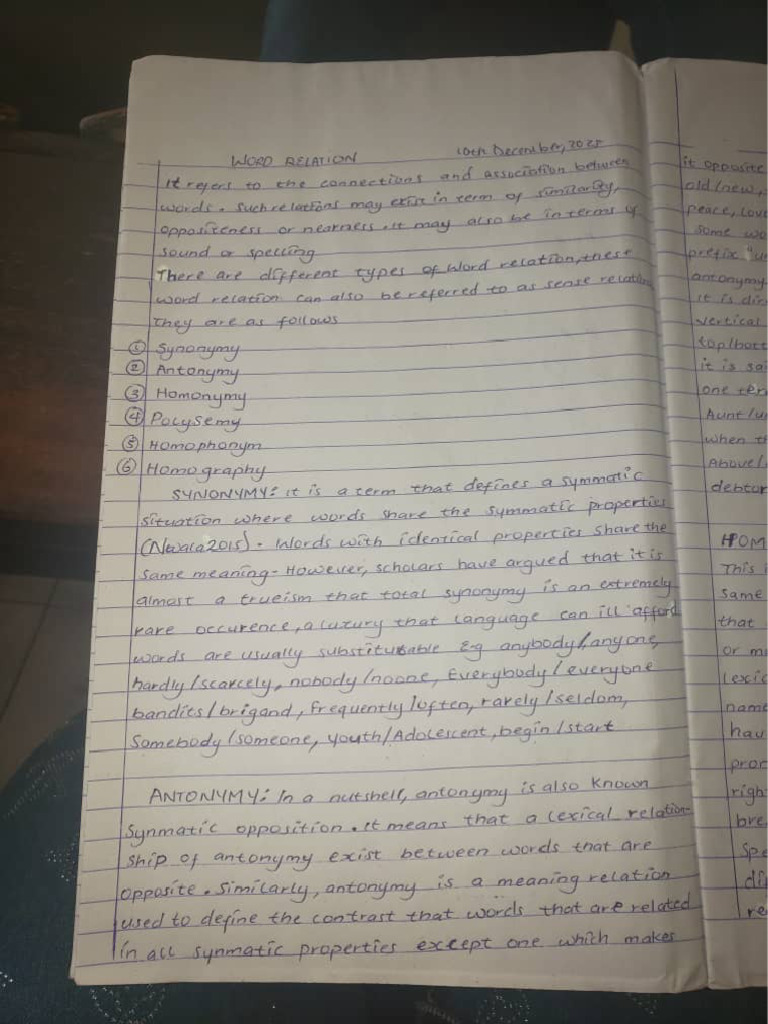 WORD RELATION 10th December, 2025
It refers to the connections and association between
words. Such relations may exist in term of similarity,
oppositeness or nearness. It may also be in terms of
sound or spelling
There are different types of word relation, these
word relation can also be referred to as sense relation
They are as follows
① Synonymy
② Antonymy
③ Homonymy
④ Polysemy
⑤ Homophonym
⑥ Homography
SYNONYMY: it is a term that defines a symmatic
situation where words share the symmatic properties
(Nwala 2015). Words with identical properties share the
same meaning- However, scholars have argued that it is
almost a trueism that total synonymy is an extremely
rare occurence, a luxury that language can ill afford
words are usually substitutable Eg anybody/anyone,
hardly/scarcely, nobody/noone, Everybody/everyone
bandits/brigand, frequently/often, rarely/seldom,
Somebody/someone, youth/Adolescent, begin/start
ANTONYMY: In a nutshell, antonymy is also known
synmatic opposition. It means that a lexical relation-
ship of antonymy exist between words that are
opposite. Similarly, antonymy is a meaning relation
used to define the contrast that words that are related
in all synmatic properties except one which makes
it opposite
old/new,
peace, love
some wo
prefix "un
antonymy
it is dir
vertical
top/bott
it is sai
one ter
Aunt/un
when th
Above/
debtor
HOM
This i
same
that
or m
lexic
name
hav
proc
righ
bre
Spe
di
re